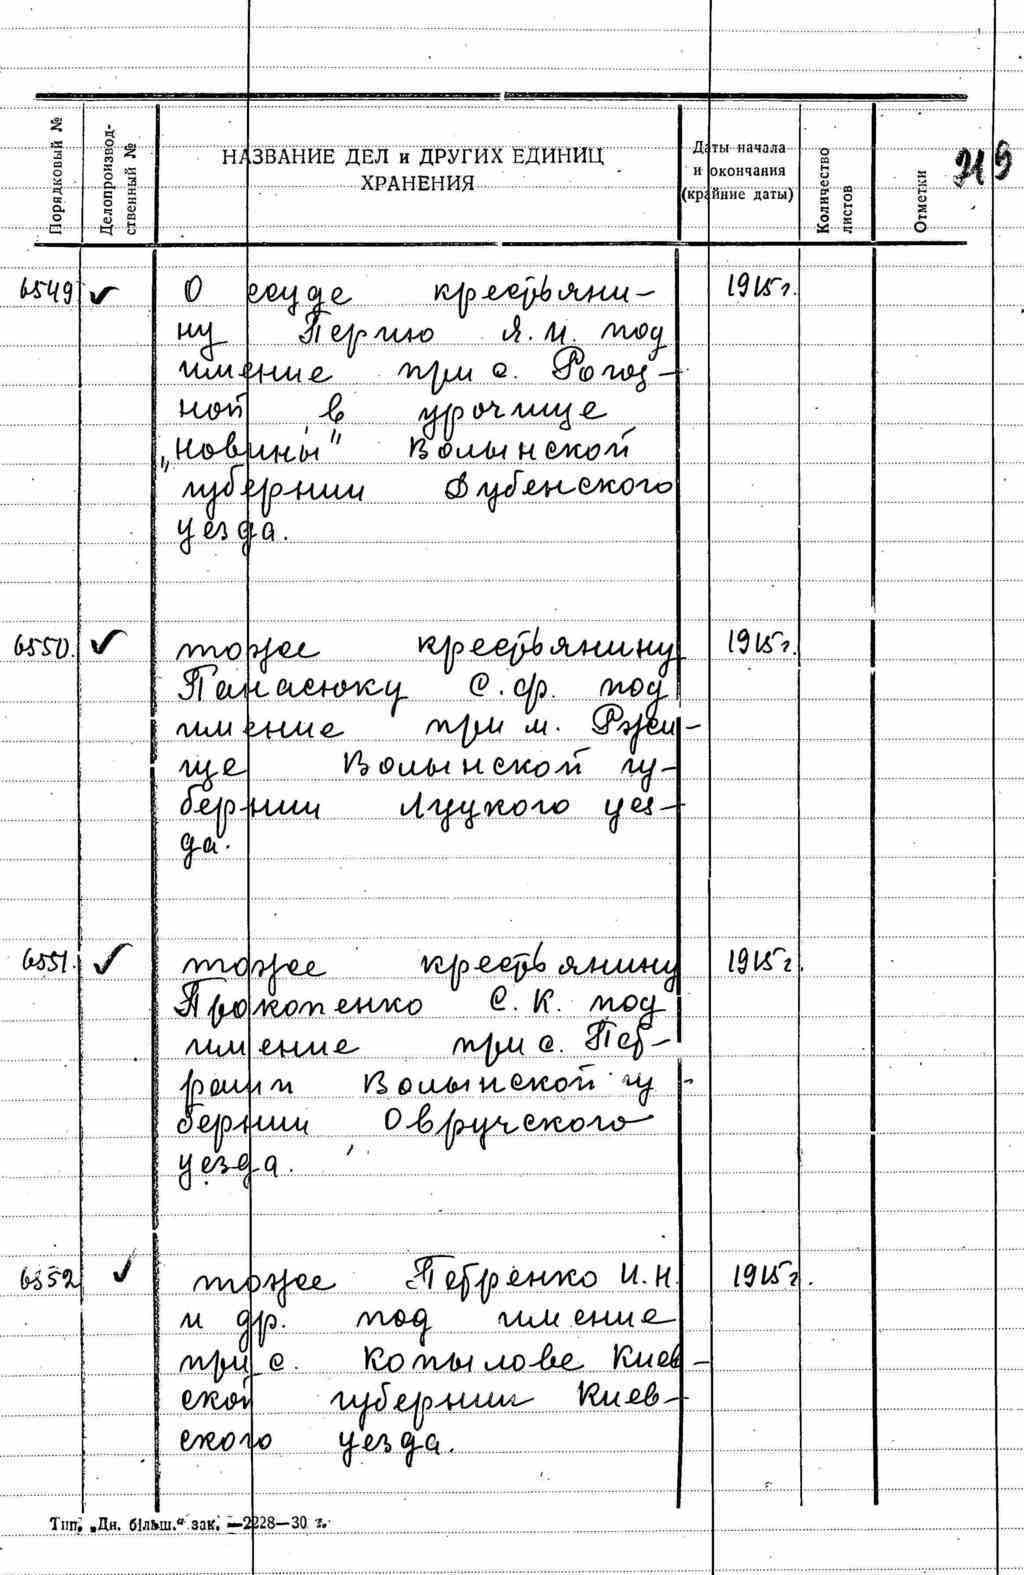 Порядковый №
Делопроизвод-
ственный №
НАЗВАНИЕ ДЕЛ и ДРУГИХ ЕДИНИЦ
ХРАНЕНИЯ
Даты начала
и окончания
(крайние даты)
Количество
листов
Отметки
319
6549 ✓ О ссуде крестьяни- 1915г.
ну Пергию Я.И. под
имение при с. Рогоз-
ной в урочище
„новины" Волынской
губернии Дубенского
уезда.
6550. ✓ тоже крестьянину 1915г.
Панасюку С.Ф. под
имение при м. Рожи-
ще Волынской гу-
бернии Луцкого уез-
да.
6551. ✓ тоже крестьянину 1915г.
Прокопенко С.К. под
имение при с. Пет-
раши Волынской гу-
бернии Овручского
уезда.
6552 ✓ тоже Петренко И.Н. 1915г.
и др. под имение
при с. Копылове Киев-
ской губернии Киев-
ского уезда.
Тип. „Дн. більш." зак. —2228—30 г.